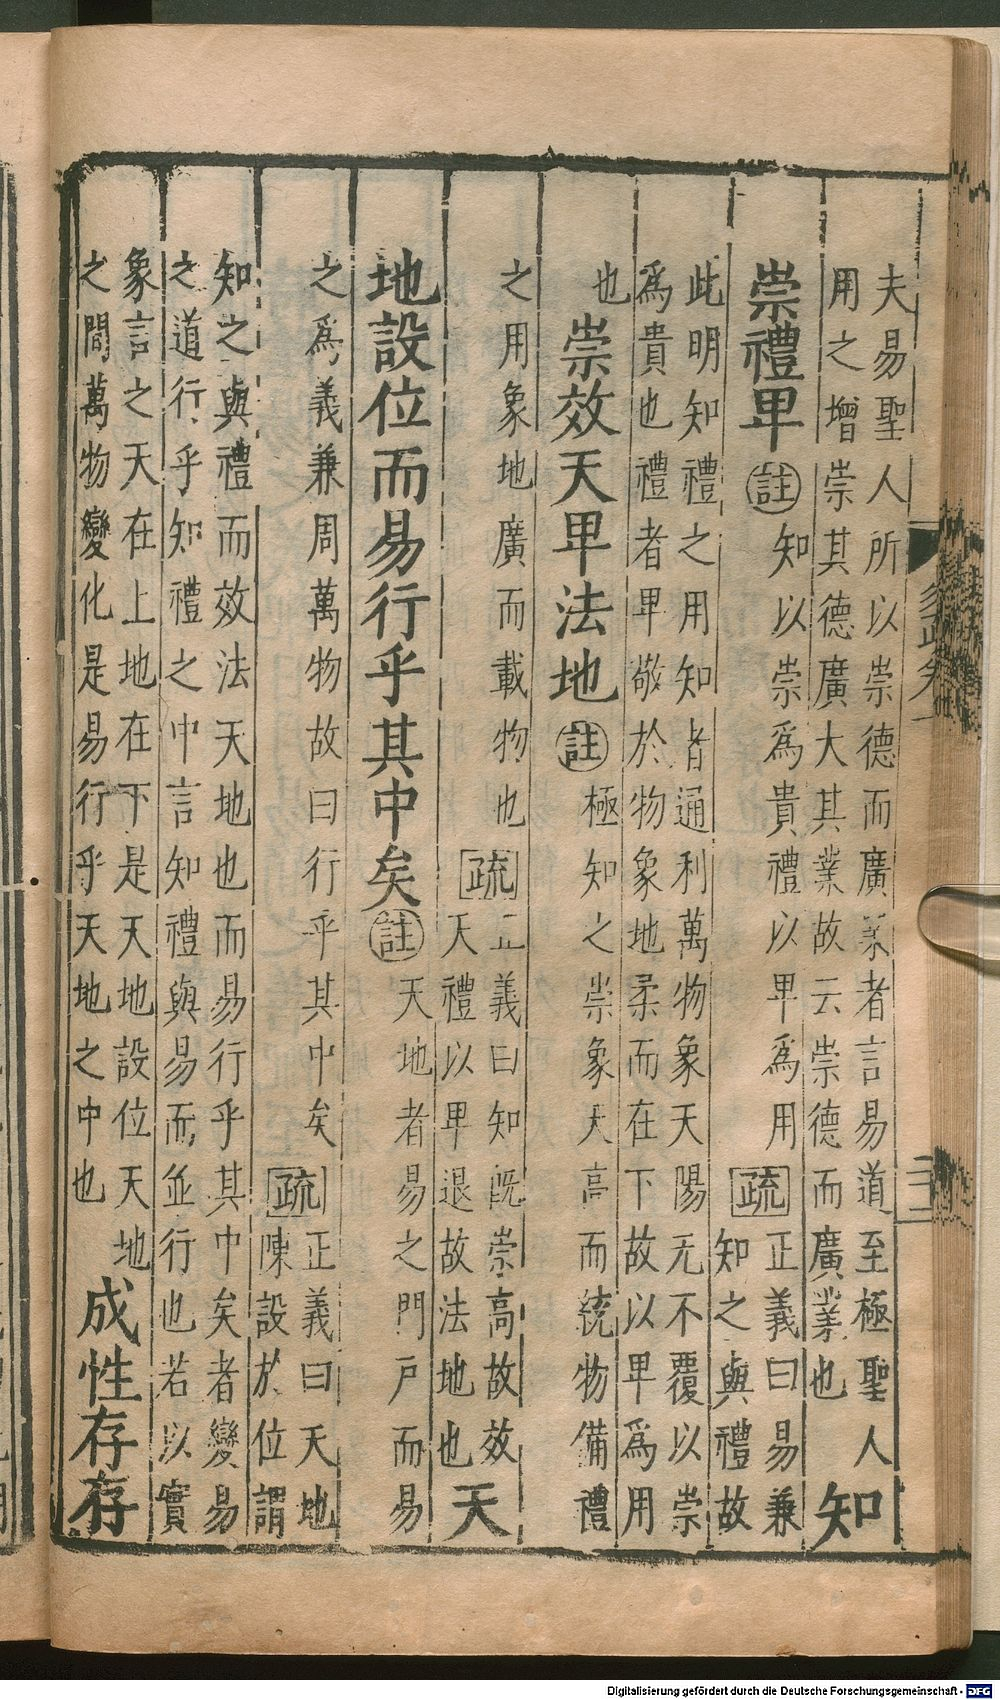 夫易聖人所以崇德而廣業者言易道至極聖人
用之增崇其德廣大其業故云崇德而廣業也 知
崇禮卑 註 知以崇爲貴禮以卑爲用 疏 正義曰易兼
知之與禮故
此明知禮之用知者通利萬物象天陽无不覆以崇
爲貴也禮者卑敬於物象地柔而在下故以卑爲用
也 崇效天卑法地 註 極知之崇象天高而統物備禮
之用象地廣而載物也 疏 正義曰知既崇高故效
天禮以卑退故法地也 天
地設位而易行乎其中矣 註 天地者易之門戶而易
之爲義兼周萬物故曰行乎其中矣 疏 正義曰天地
陳設於位謂
知之與禮而效法天地也而易行乎其中矣者變易
之道行乎知禮之中言知禮與易而並行也若以實
象言之天在上地在下是天地設位天地
之間萬物變化是易行乎天地之中也 成性存存
Digitalisierung gefördert durch die Deutsche Forschungsgemeinschaft - DFG